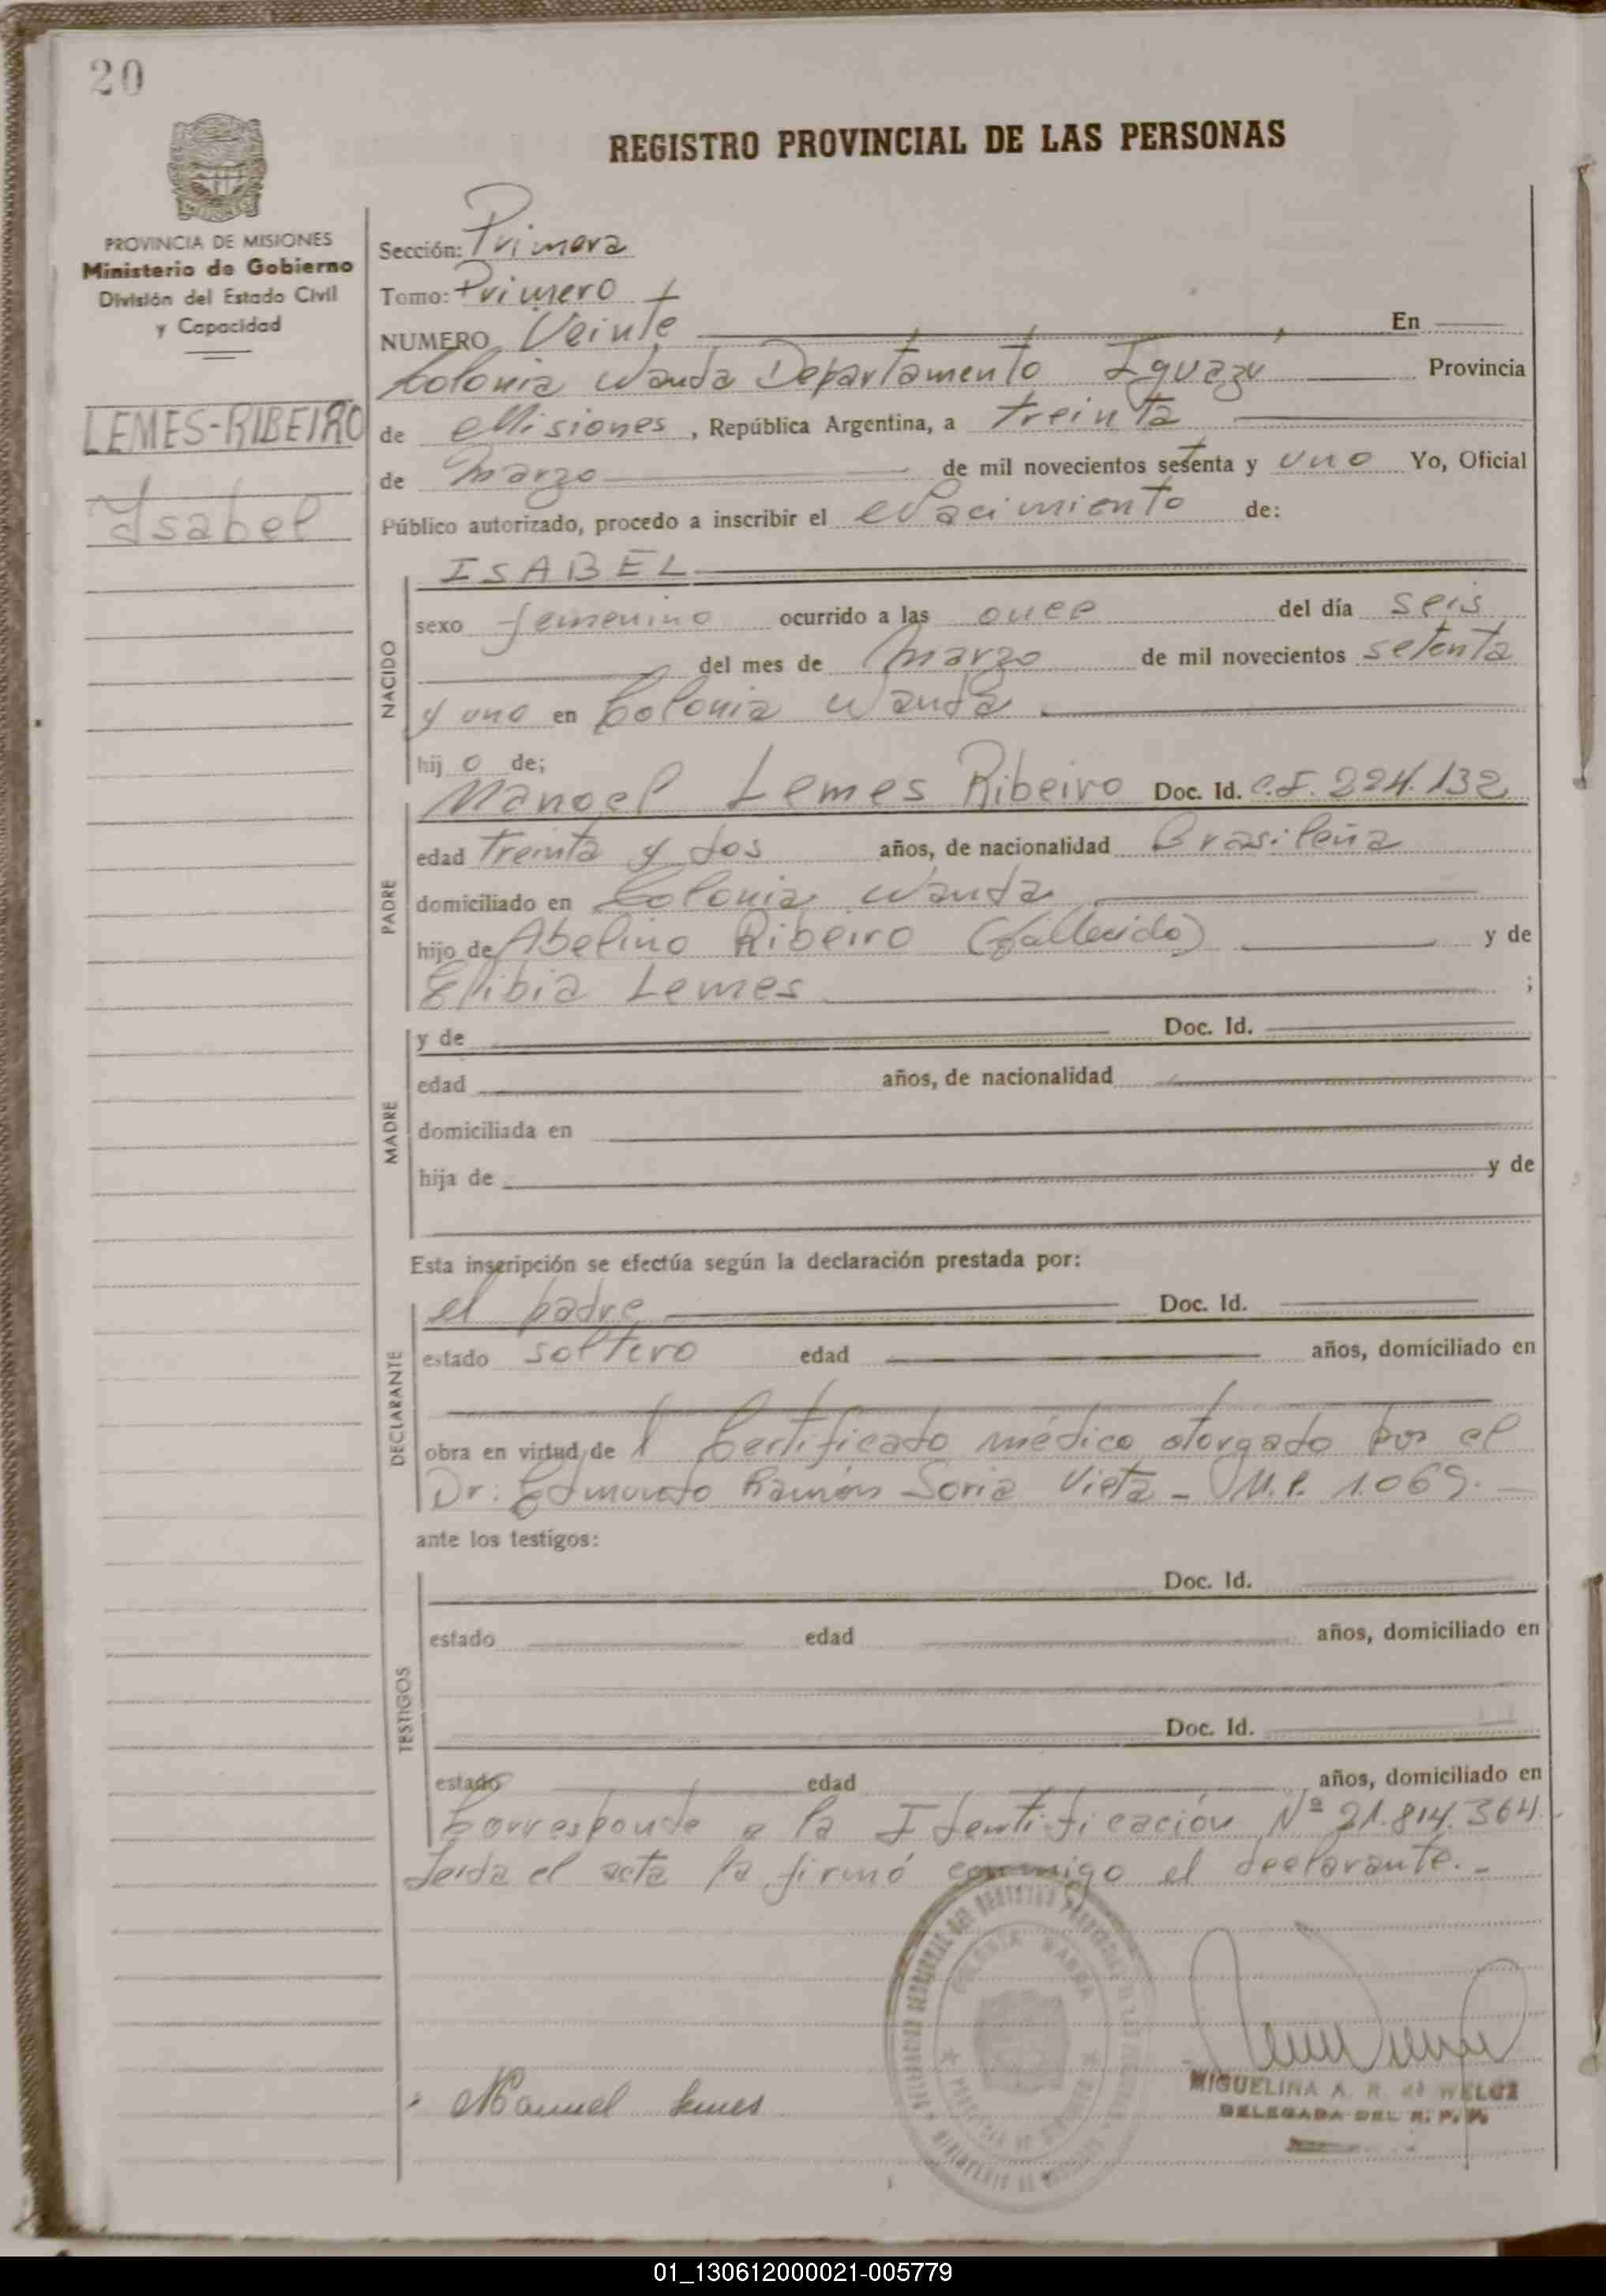 20
REGISTRO PROVINCIAL DE LAS PERSONAS
PROVINCIA DE MISIONES
Ministerio de Gobierno
División del Estado Civil
y Capacidad
LEMES-RIBEIRO
Isabel
Sección: Primera
Tomo: Primero
NUMERO Veinte En
Colonia Wanda Departamento Iguazú Provincia
de Misiones, República Argentina, a treinta
de Marzo de mil novecientos setenta y uno Yo, Oficial
Público autorizado, procedo a inscribir el Nacimiento de:
NACIDO
ISABEL
sexo femenino ocurrido a las once del día seis
del mes de Marzo de mil novecientos setenta
y uno en Colonia Wanda
hij o de;
PADRE
Manoel Lemes Ribeiro Doc. Id. C.I. 224.132
edad treinta y dos años, de nacionalidad Brasileña
domiciliado en Colonia Wanda
hijo de Abelino Ribeiro (fallecido) y de
Elibia Lemes ;
MADRE
y de Doc. Id.
edad años, de nacionalidad
domiciliada en
hija de y de
Esta inscripción se efectúa según la declaración prestada por:
DECLARANTE
el padre Doc. Id.
estado soltero edad años, domiciliado en
obra en virtud de 1 Certificado médico otorgado por el
Dr: Edmundo Ramón Soria Vieta - M.P. 1.069.-
ante los testigos:
TESTIGOS
Doc. Id.
estado edad años, domiciliado en
Doc. Id.
estado edad años, domiciliado en
Corresponde a la Identificación Nº 21.814.364.
Leida el acta la firmó conmigo el declarante.-
COLONIA WANDA
Manuel Lemes
MIGUELINA A. R. de WELCZ
DELEGADA DEL R. P. P.
01_130612000021-005779